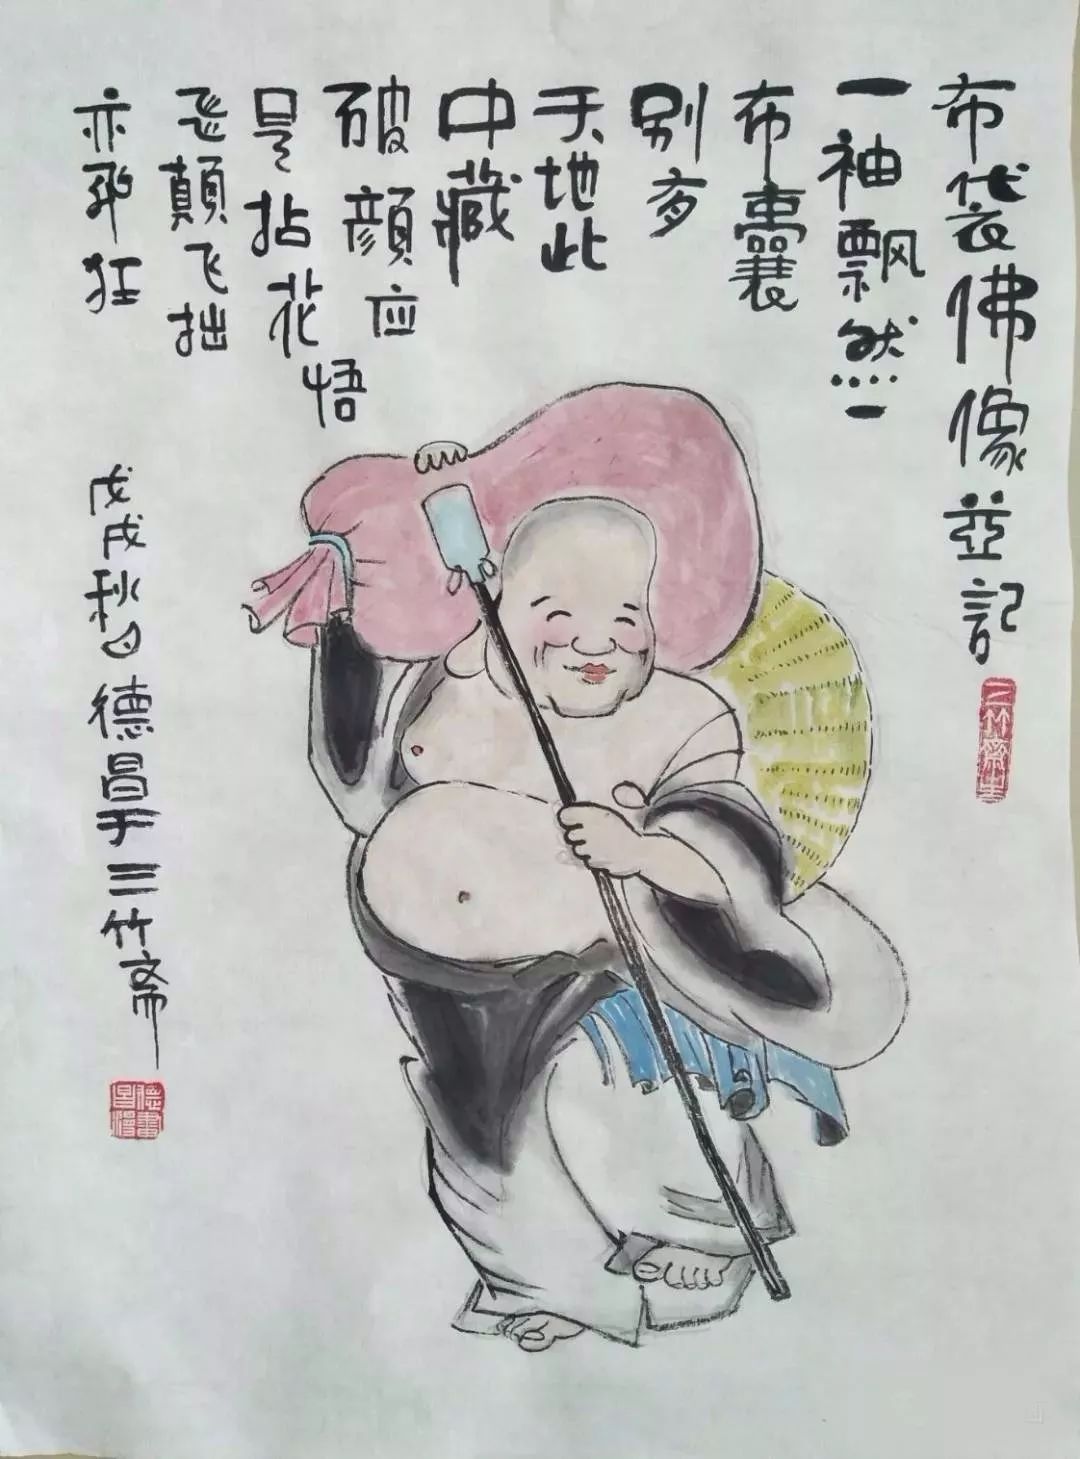 布袋佛像並記
三竹斋主
一袖飘然一
布囊
别有
天地此
中藏
破顔应
是拈花悟
飞顛飞拙
亦飞狂
戊戌秋月德昌于三竹斋